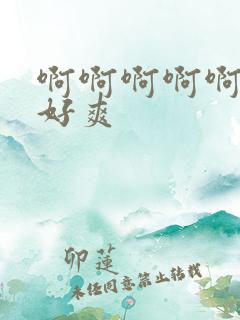 啊啊啊啊啊
好爽
卯莲
未经同意禁止转载